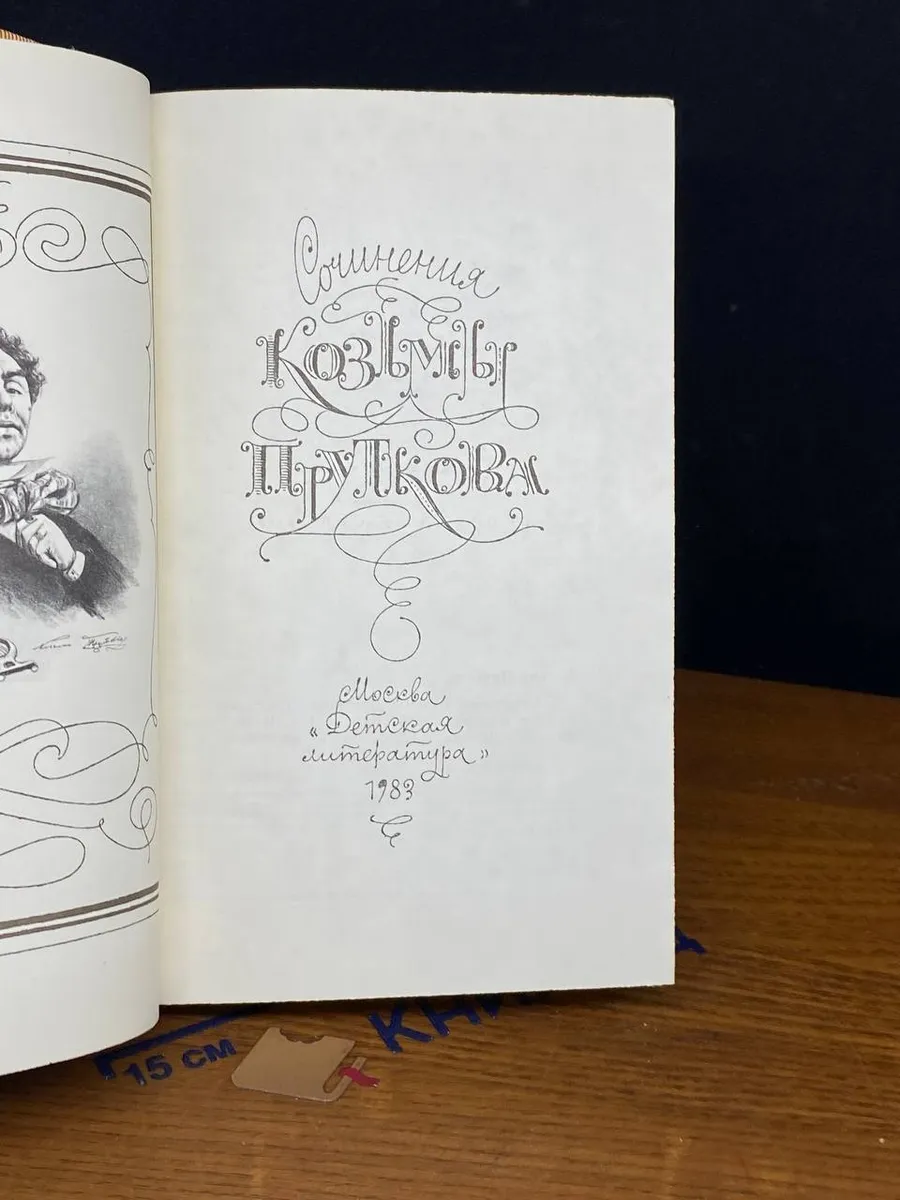 Сочинения
Козьмы
Пруткова
Москва
«Детская
литература»
1983
15 см